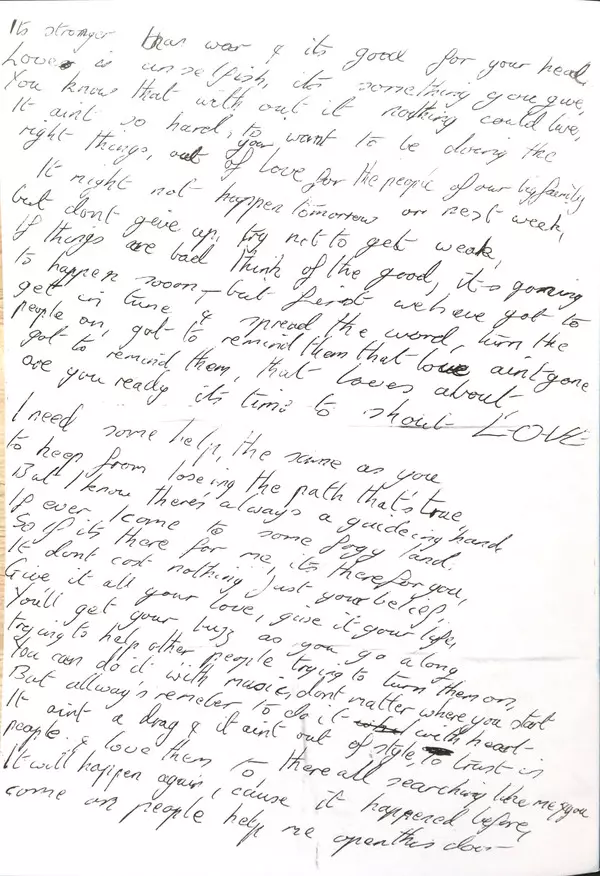 Its stronger than war & its good for your head,
Love is unselfish, its something you give,
You know that with out it nothing could live,
It aint so hard, to you want to be doeing the
right things, out of love for the people of our big family
It might not happen tomorrow or next week,
but dont give up, try not to get weak,
If things are bad think of the good, it's gowing
to happen soon, but first we have got to
get in tune, & spread the word, turn the
people on, got to remind them that love aint gone
got to remind them, that loves about,
are you ready its time to shout LOVE
I need some help, the same as you
to keep from loseing the path that's true,
But I know there's always a guideing hand
If ever I come to some fogy land.
So if its there for me, its there for you,
It dont cost nothing just your belief,
Give it all your love, give it your life,
You'll get your buzz as you go along
trying to help other people trying to turn them on,
You can do it with music, dont matter where you start
But allway's remeber to do it with heart
It aint a drag & it aint out of style, to trust in
people & love them to there all searching like me & you
It will happen again, cause it happened before,
come on people help me open this door